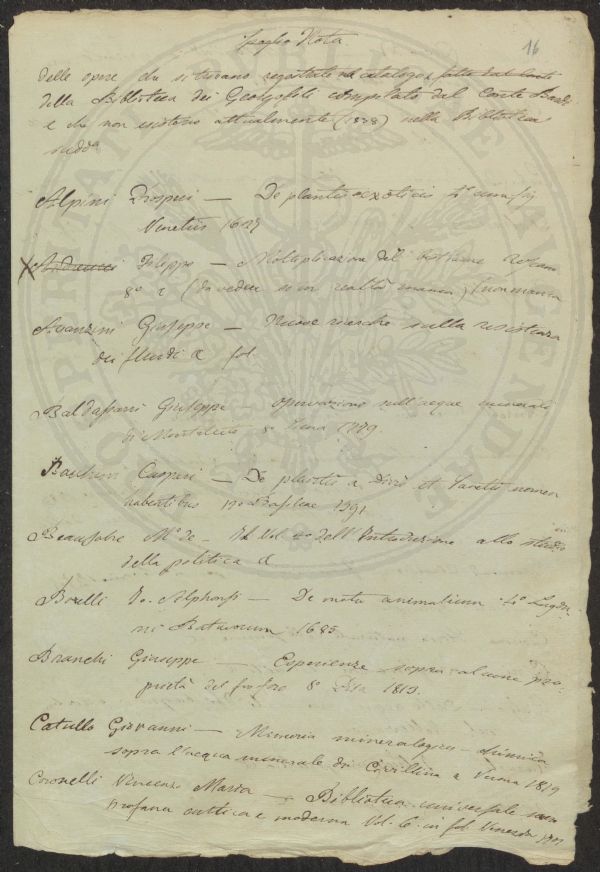 Nota
16
delle opere che si trovano registrate nel catalogo fatto dal Conte
della Biblioteca dei Georgofili compilato dal Conte Bardi
e che non esistono attualmente (1838) nella Biblioteca
sudda
Alpini Prosperi — De plantis exoticis 4° cum fig
Venetiis 1629
X Filippo — Moltiplicazione del bestiame
8° (da vedere se in realtà manca) non manca
Avanzini Giuseppe — Nuove ricerche sulla resistenza
dei fluidi fol.
Baldassarri Giuseppe — Osservazioni sull'acque minerali
di 8° Siena
Bauhini Caspari — De plantis a Divis et Sanctis nomen
habentibus Basileae 1591
Beausobre Mr de — Il Vol 2° dell'Introduzione allo studio
della politica
Borelli Jo. Alphonsi — De motu animalium 4° Lugdu
ni Batavorum 1685
Branchi Giuseppe — Esperienze sopra alcune pro-
prietà del fosforo 8° Pisa 1813.
Catullo Giovanni — Memoria mineralogico-chimica
sopra l'acqua minerale di Civillina Verona 1819
Coronelli Vincenzo Maria — Biblioteca universale sacra
profana antica e moderna Vol. 6. in fol. Venezia 1701